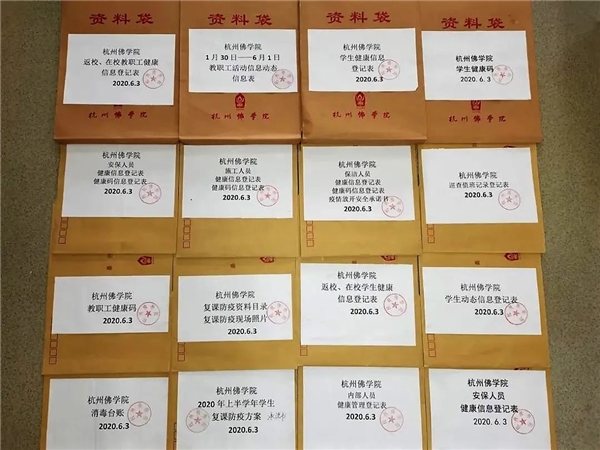 资料袋
杭州佛学院
返校、在校教职工健康
信息登记表
2020.6.3
杭州佛学院
资料袋
杭州佛学院
1月30日——6月1日
教职工活动信息动态
信息表
2020.6.3
杭州佛学院
资料袋
杭州佛学院
学生健康信息
登记表
2020.6.3
杭州佛学院
资料袋
杭州佛学院
学生健康码
2020. 6. 3
杭州佛学院
杭州佛学院
安保人员
健康信息登记表
健康码信息登记表
2020.6.3
杭州佛学院
施工人员
健康信息登记表
健康码信息登记表
2020.6.3
杭州佛学院
保洁人员
健康信息登记表
健康码信息登记表
疫情放开安全承诺书
2020.6.3
杭州佛学院
巡查值班记录登记表
2020.6.3
杭州佛学院
教职工健康码
2020.6.3
杭州佛学院
复课防疫资料目录
复课防疫现场照片
2020.6.3
杭州佛学院
返校、在校学生健康
信息登记表
2020.6.3
杭州佛学院
学生动态信息登记表
2020.6.3
杭州佛学院
消毒台账
2020.6.3
杭州佛学院
2020年上半学年学生
复课防疫方案
2020.6.3
杭州佛学院
内部人员
健康管理登记表
2020.6.3
杭州佛学院
安保人员
健康信息登记表
2020. 6. 3